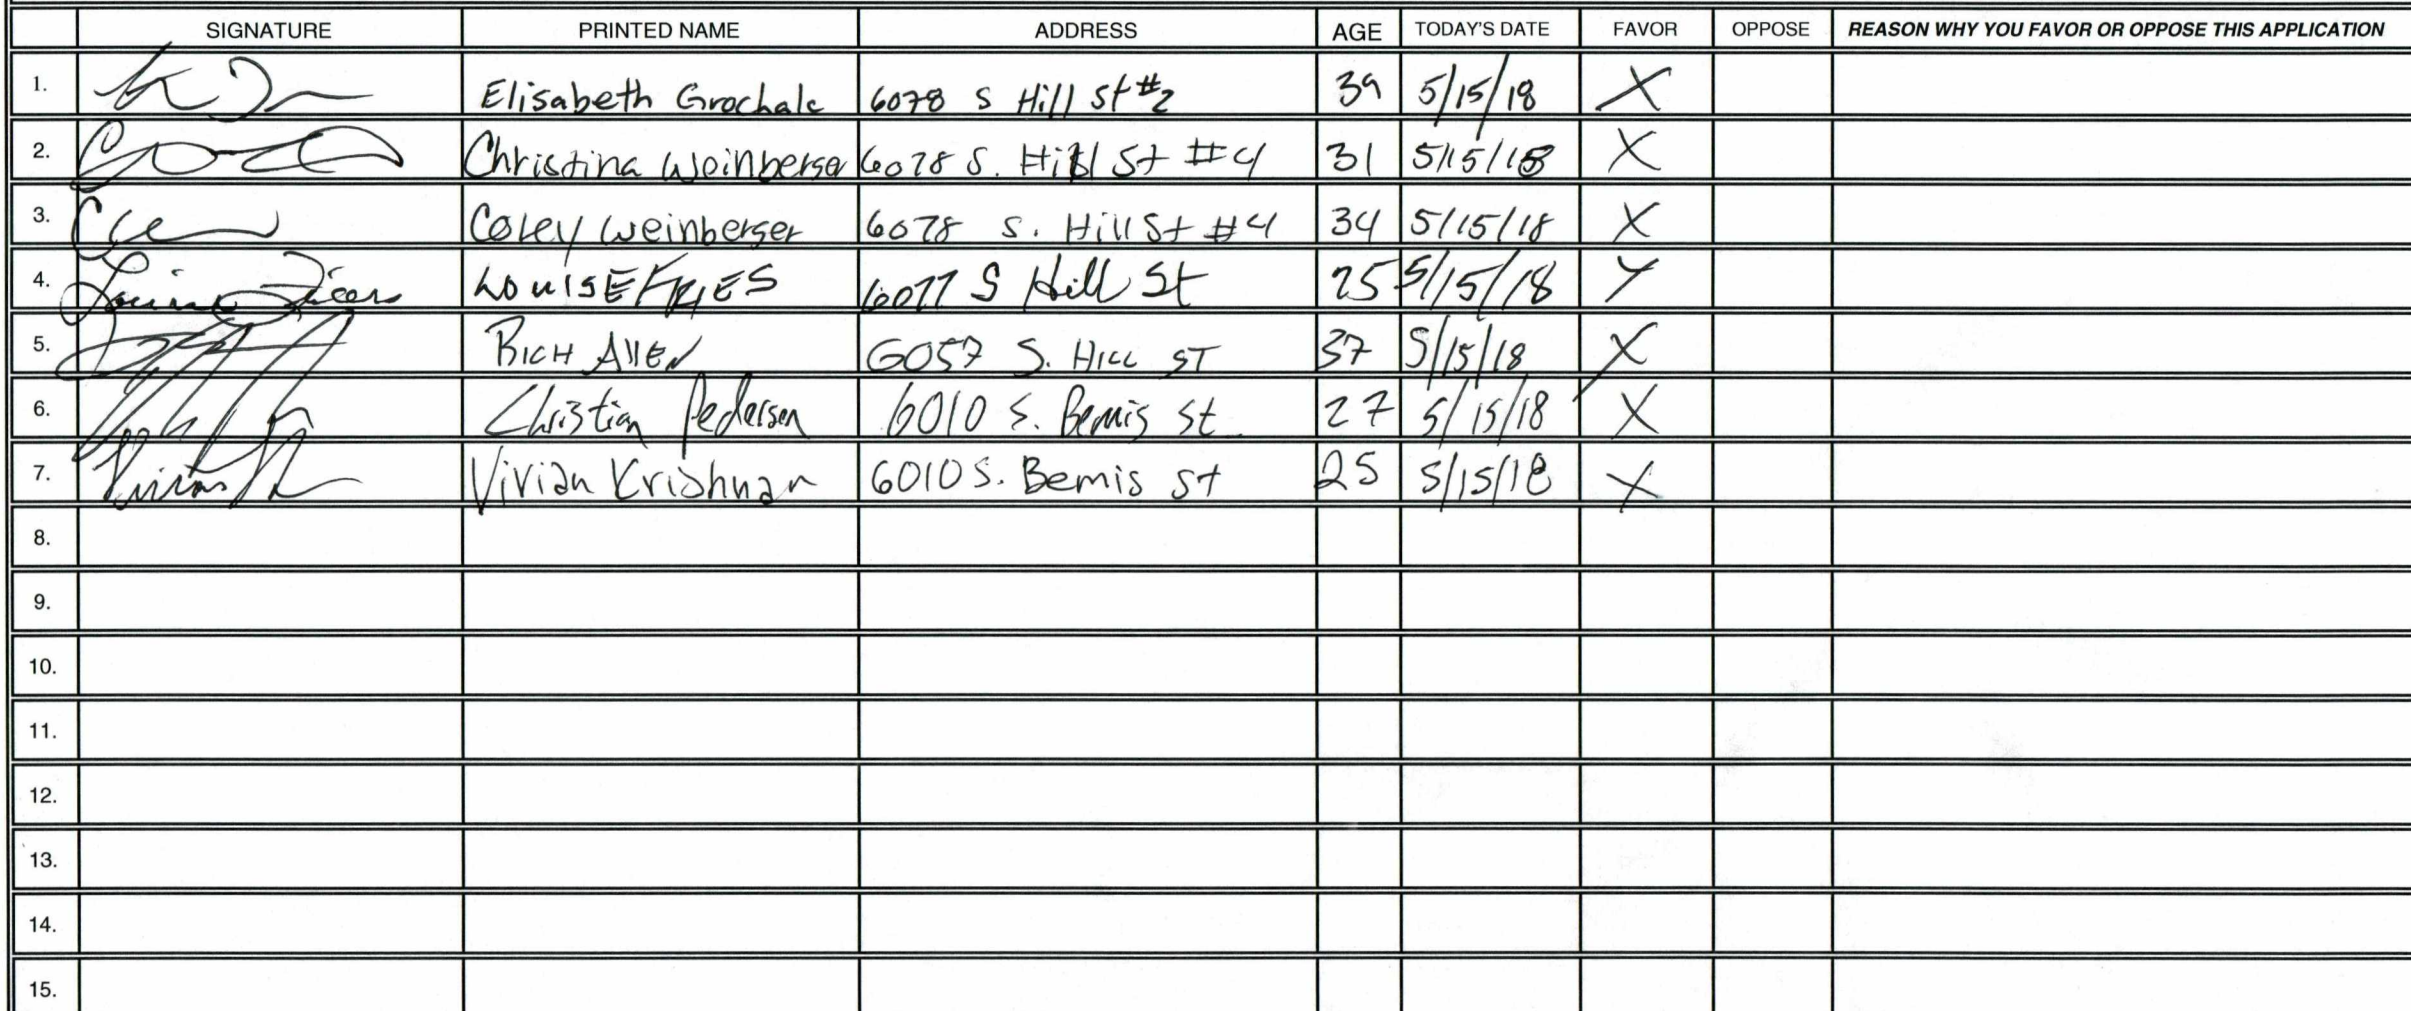 SIGNATURE PRINTED NAME ADDRESS AGE TODAY'S DATE FAVOR OPPOSE REASON WHY YOU FAVOR OR OPPOSE THIS APPLICATION
1. Elisabeth Grochala 6078 S Hill St #2 39 5/15/18 X
2. Christina Weinberger 6078 S. Hill St #4 31 5/15/18 X
3. Corey Weinberger 6078 S. Hill St #4 34 5/15/18 X
4. Louise Fries LOUISE FRIES 6077 S Hill St 5/15/18 X
5. RICH ALLEN 6057 S. HILL ST 37 5/15/18 X
6. Christian Pedersen 6010 S. Bemis St 27 5/15/18 X
7. Vivian Krishnan 6010 S. Bemis St 25 5/15/18 X
8.
9.
10.
11.
12.
13.
14.
15.